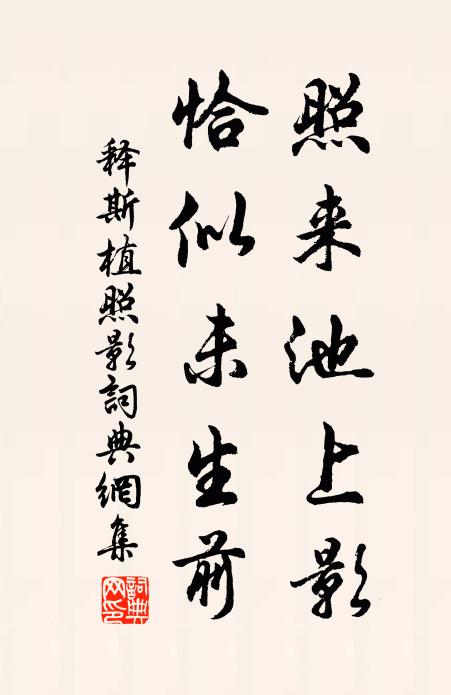 照来池上影
恰似未生前
释斯植照影詞典網集
詞典
网印